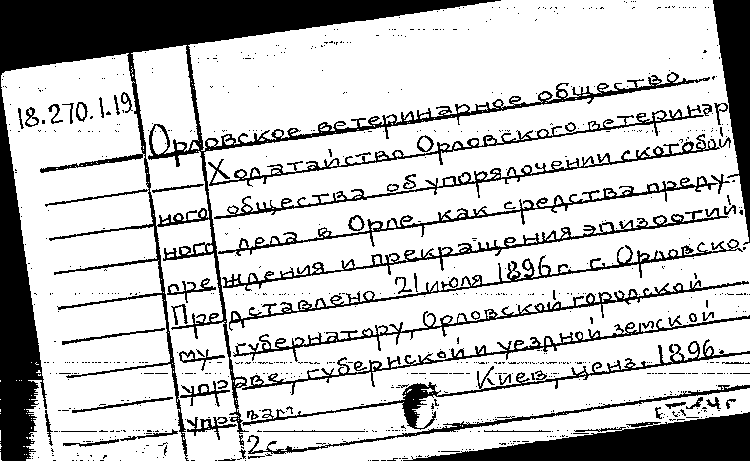 18.270.1.19.
Орловское ветеринарное общество.
Ходатайство Орловского ветеринар
ного общества об упорядочении скотобой
ного дела в Орле, как средства преду-
преждения и прекращения эпизоотий.
Представлено 21 июля 1896 г. г. Орловско-
му губернатору, Орловской городской
управе, губернской и уездной земской
управам.
Киев, ценз. 1896.
2 с.